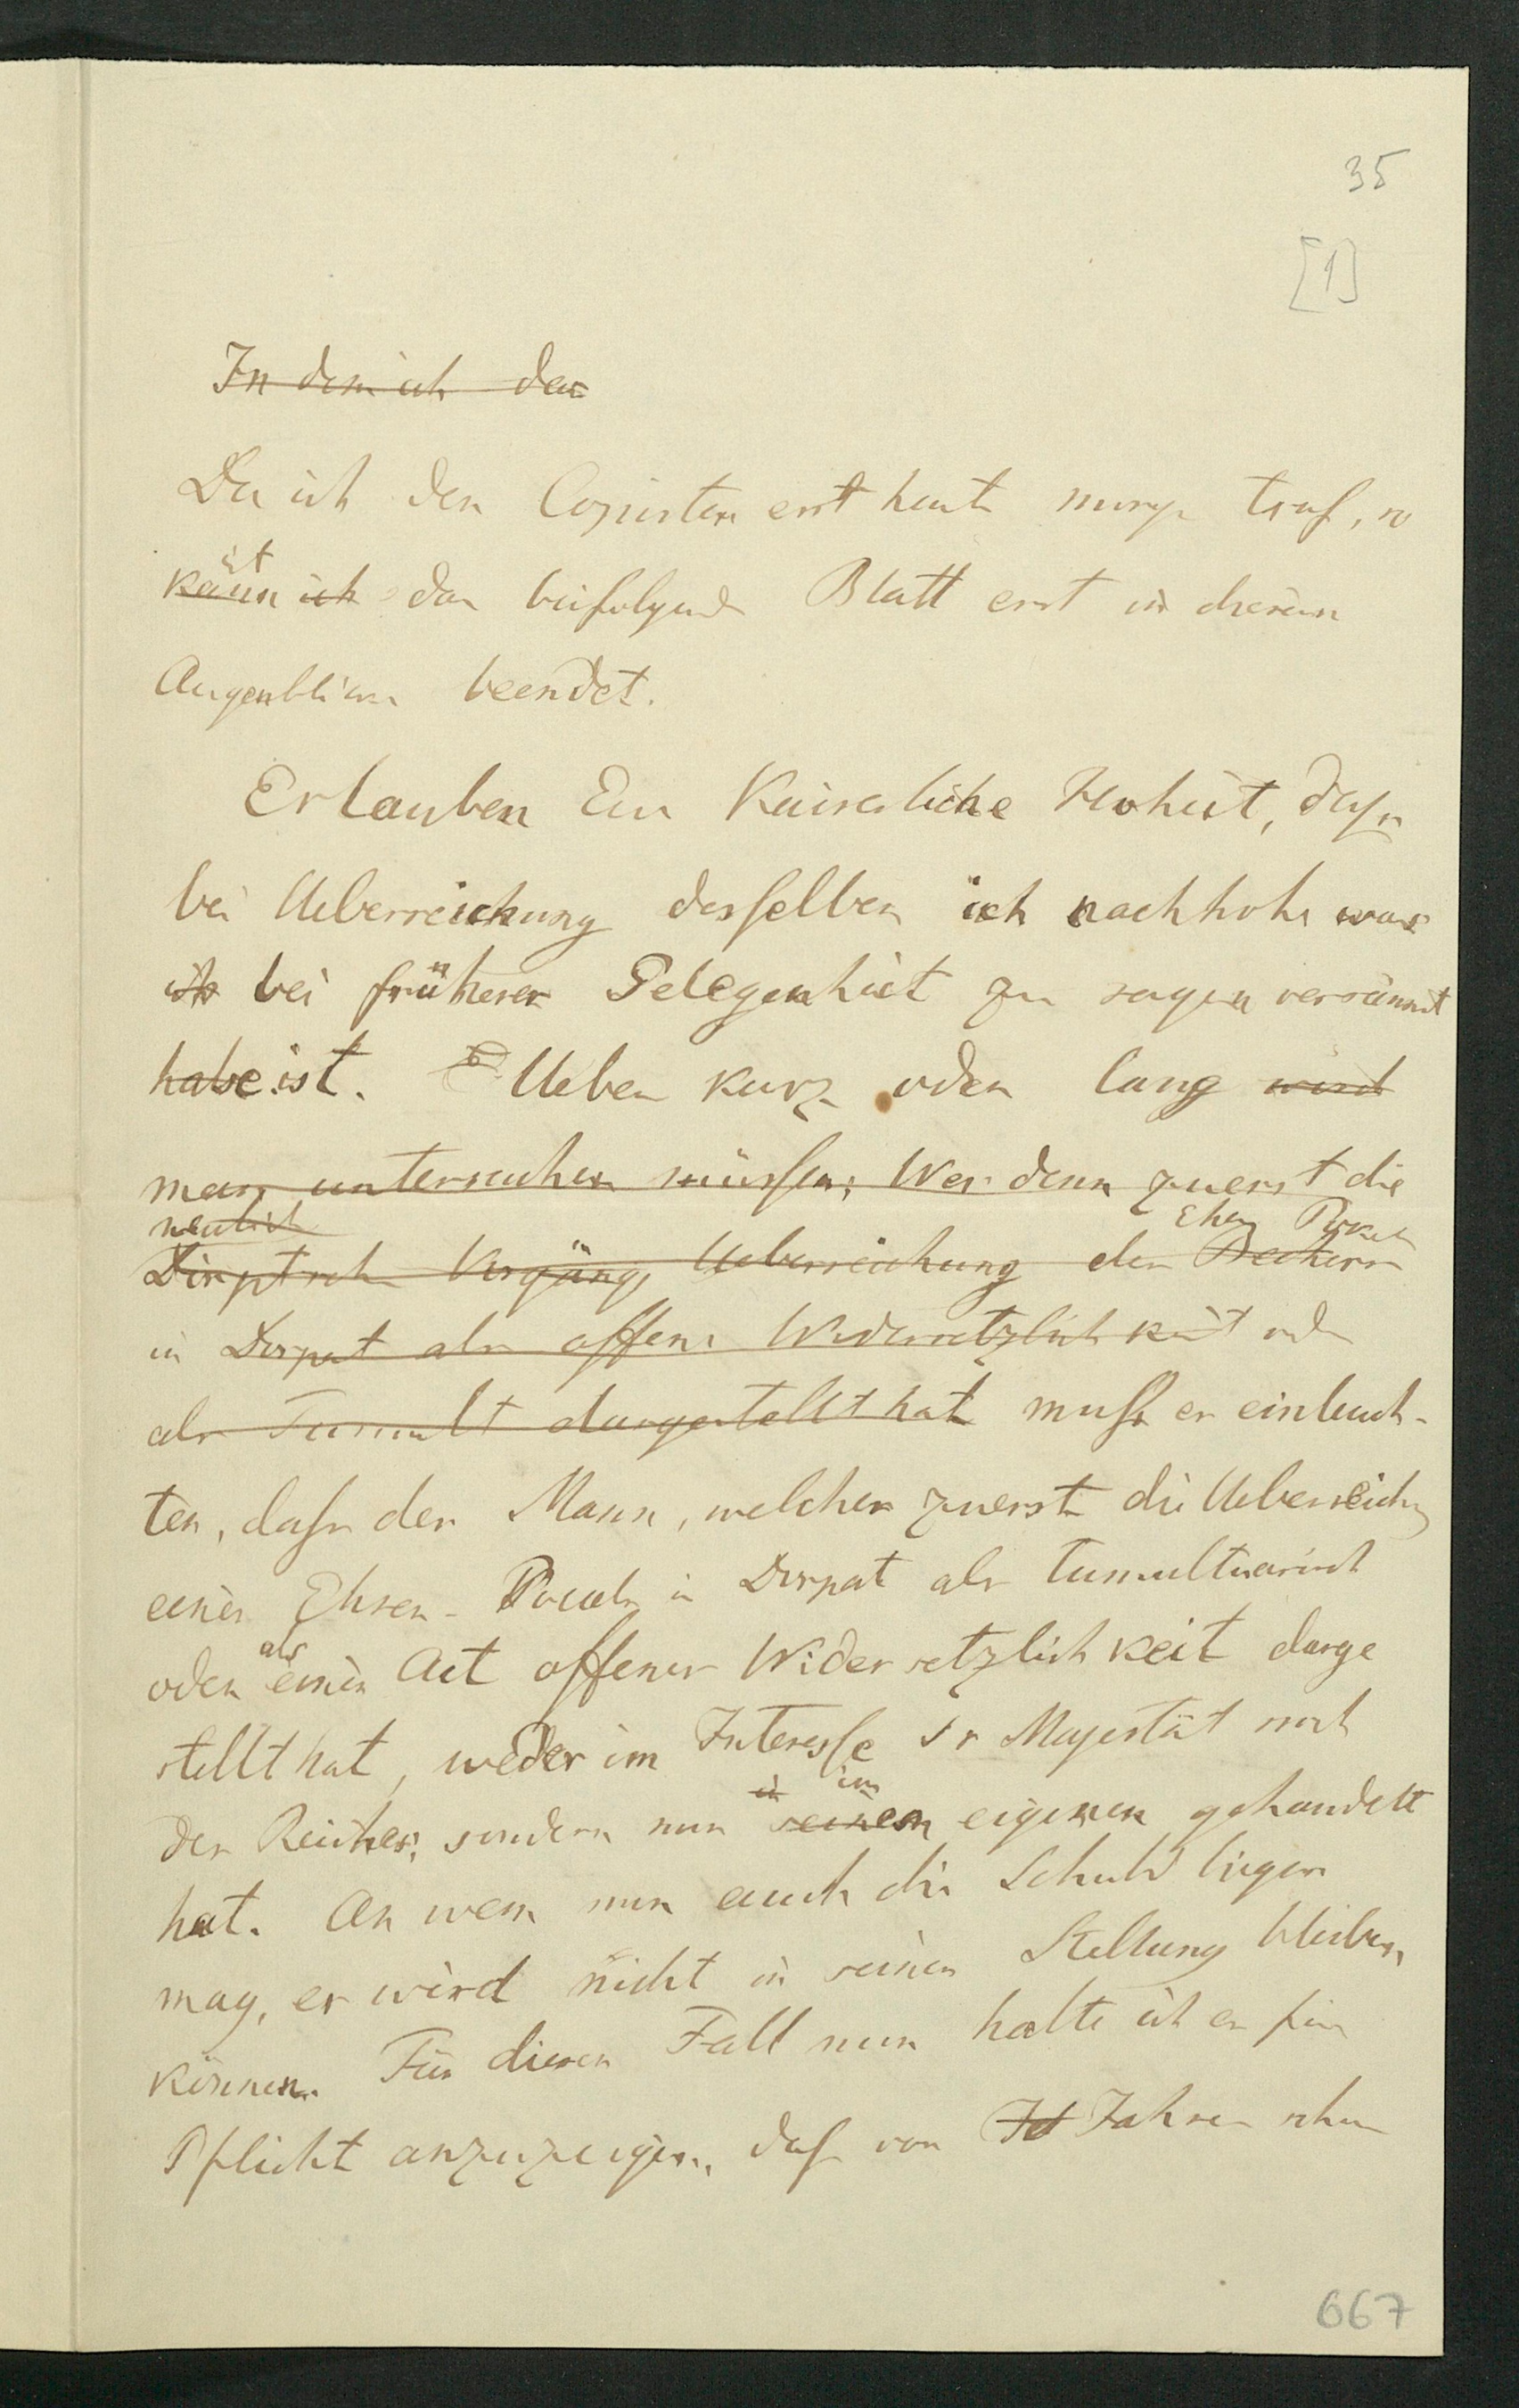 35
[1]
In dem ich das
Da ich den Copisten erst heute morgen traf, so
kann ich ist das beifolgende Blatt erst in diesem
Augenblicke beendet.
Erlauben Eur Kaiserliche Hoheit, dass
bei Ueberreichung desselben ich nachhole was
ich bei früherer Gelegenheit zu sagen versäumt
habe ist. Ueber kurz oder lang wird
man untersuchen müssen, Wer denn zuerst die
neulich Ehren Pokal
Dörptsche Vorgänge Ueberreichung des Bechers
in Dorpat als offene Widersetzlichkeit oder
als Tumult dargestellt hat muss es einleuch-
ten, dass der Mann, welcher zuerst die Ueberreichung
eines Ehren-Pocals in Dorpat als tumultuarisch
oder als einen Act offener Widersetzlichkeit darge
stellt hat, weder im Interesse Sr Majestät noch
in im
des Reiches, sondern nur seinem eigenen gehandelt
hat. An wem nun auch die Schuld liegen
mag, er wird nicht in seiner Stellung bleiben
können. Für diesen Fall nun halte ich es für
Pflicht anzuzeigen, dass vor Jahren schon
667